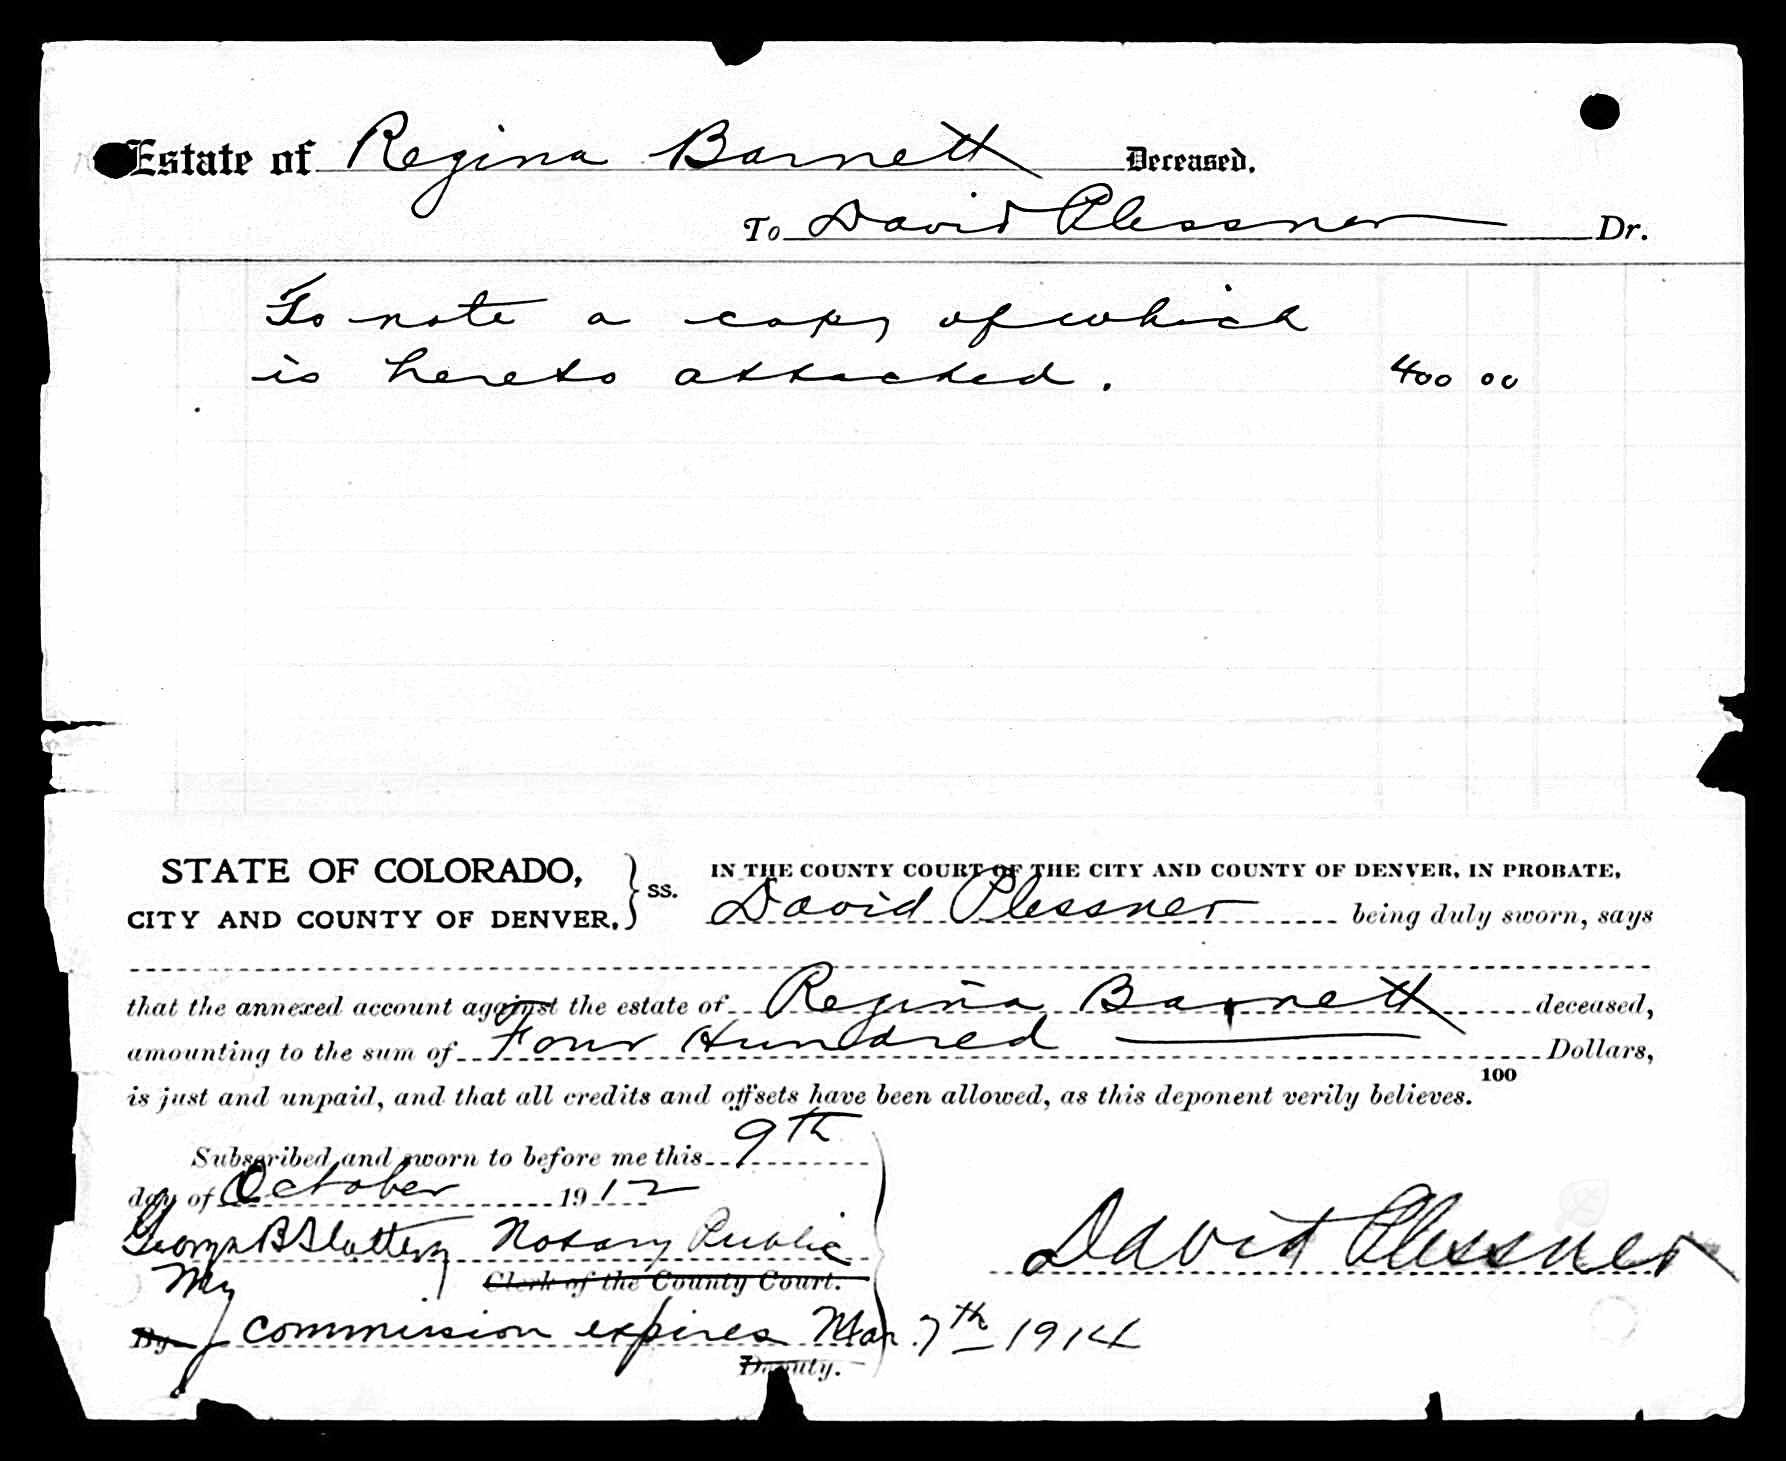 Estate of Regina Barnett Deceased.
To David Plessner Dr.
To note a copy of which
is hereto attached. 400 00
STATE OF COLORADO,
CITY AND COUNTY OF DENVER, } ss.
IN THE COUNTY COURT OF THE CITY AND COUNTY OF DENVER, IN PROBATE,
David Plessner being duly sworn, says
that the annexed account against the estate of Regina Barnett deceased,
amounting to the sum of Four Hundred Dollars,
100
is just and unpaid, and that all credits and offsets have been allowed, as this deponent verily believes.
Subscribed and sworn to before me this 9th
day of October 1912
George B Slattery Notary Public
David Plessner
My Clerk of the County Court.
By commission expires Mar. 7th 1914
Deputy.